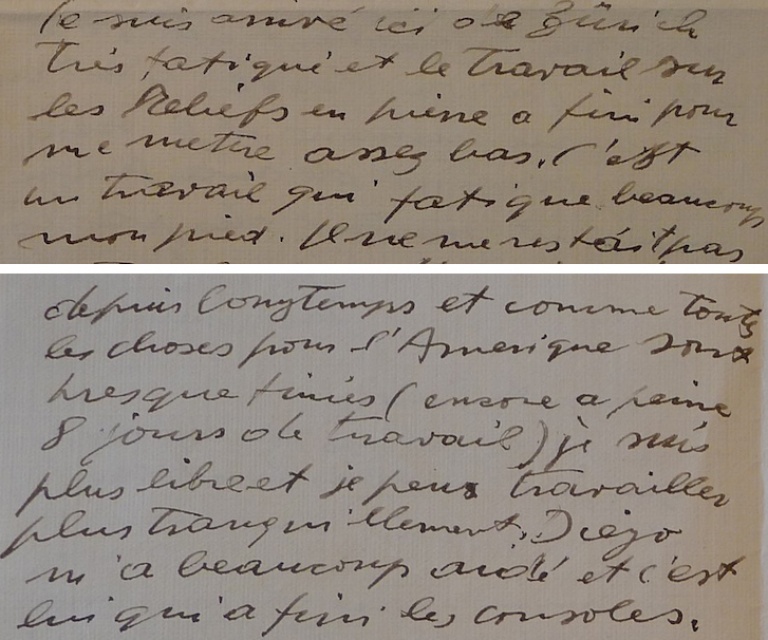 Je suis arrivé ici de Zürich
très fatigué et le travail sur
les Reliefs en pierre a fini pour
me mettre assez bas. C'est
un travail qui fatigue beaucoup
mon pied. Il ne me restait pas
depuis longtemps et comme toutes
les choses pour l'Amerique sont
presque finies (encore a peine
8 jours de travail) je suis
plus libre et je peux travailler
plus tranquillement. Diego
m'a beaucoup aidé et c'est
lui qui a fini les consoles.